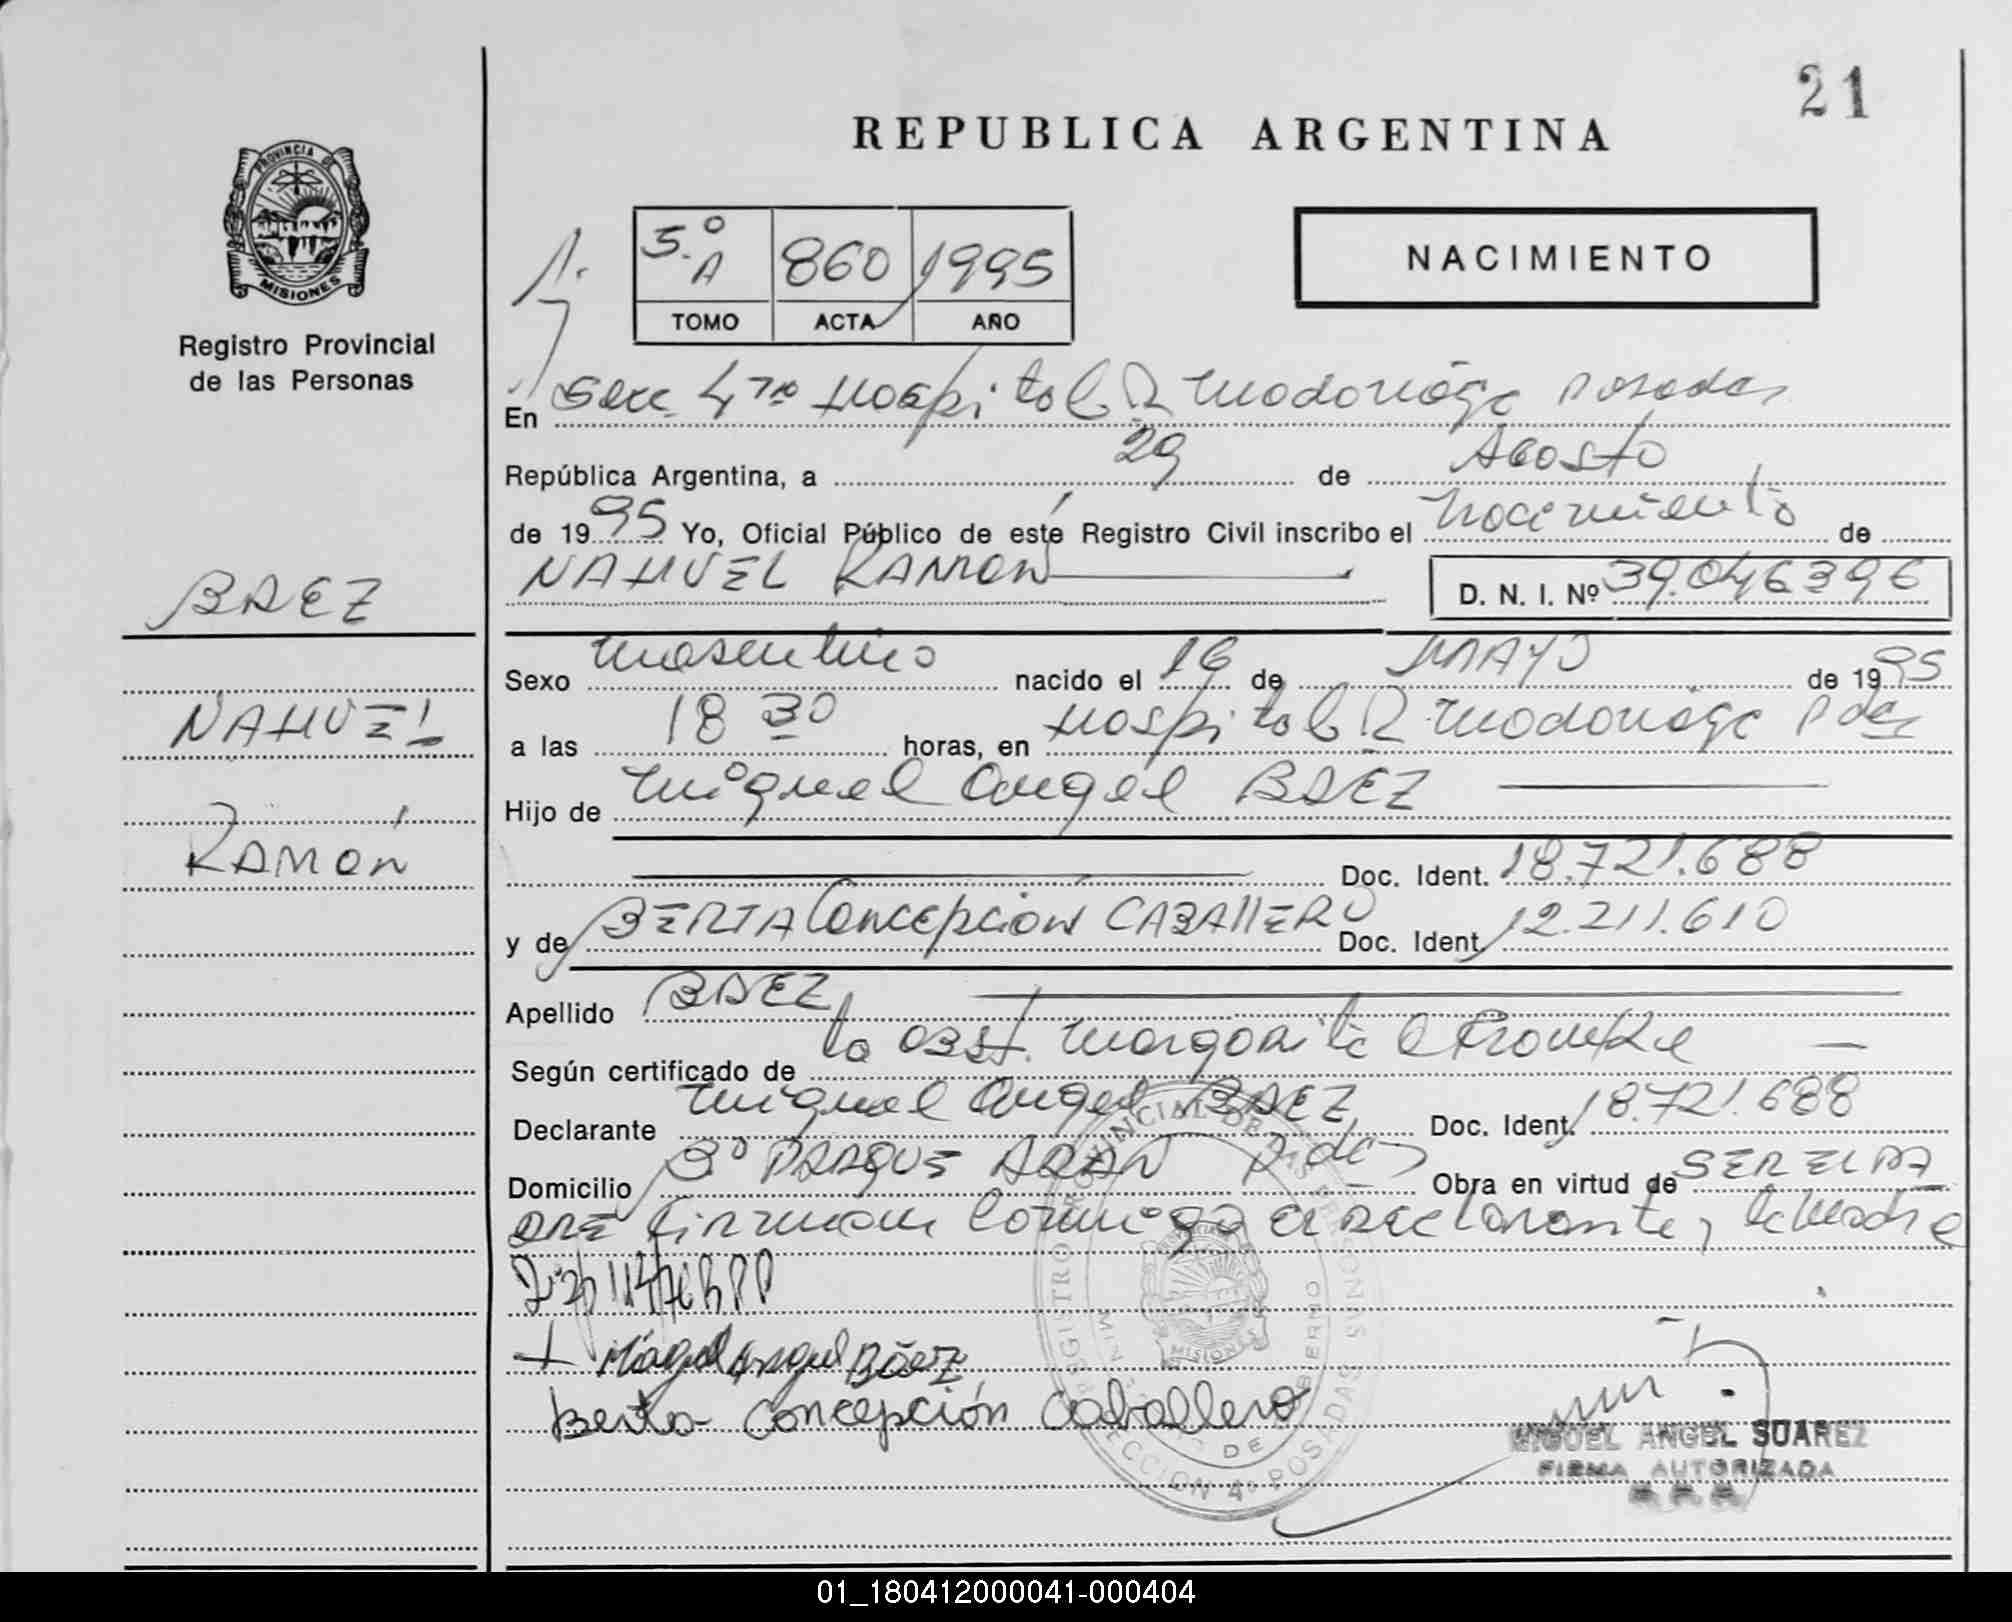 21
REPUBLICA ARGENTINA
PROVINCIA DE MISIONES
Registro Provincial
de las Personas
5.º A 860 1995
TOMO ACTA AÑO
NACIMIENTO
En Secc. 4ta Hospital R Madariaga Posadas
República Argentina, a 29 de Agosto
de 1995 Yo, Oficial Público de este Registro Civil inscribo el nacimiento de
NAHUEL RAMON
D. N. I. Nº 39.046396
BAEZ
NAHUEL
RAMÓN
Sexo masculino nacido el 16 de MAYO de 1995
a las 18 30 horas, en Hospital R Madariaga Pdas
Hijo de Miguel Angel BAEZ
Doc. Ident. 18.721.688
y de BERTA Concepción CABAllERO Doc. Ident. 12.211.610
Apellido BAEZ
Según certificado de la obst. Margarita
Declarante Miguel Angel BAEZ Doc. Ident. 18.721.688
Domicilio Bº PARQUE ADAN Pdas Obra en virtud de SER EL PA
DRE Firman Conmigo el declarante, la Madre
Miguel Angel Báez
Berta Concepción Caballero
REGISTRO PROVINCIAL DE LAS PERSONAS
SECCION 4º POSADAS
MINISTERIO DE GOBIERNO
MISIONES
MIGUEL ANGEL SUAREZ
FIRMA AUTORIZADA
01_180412000041-000404